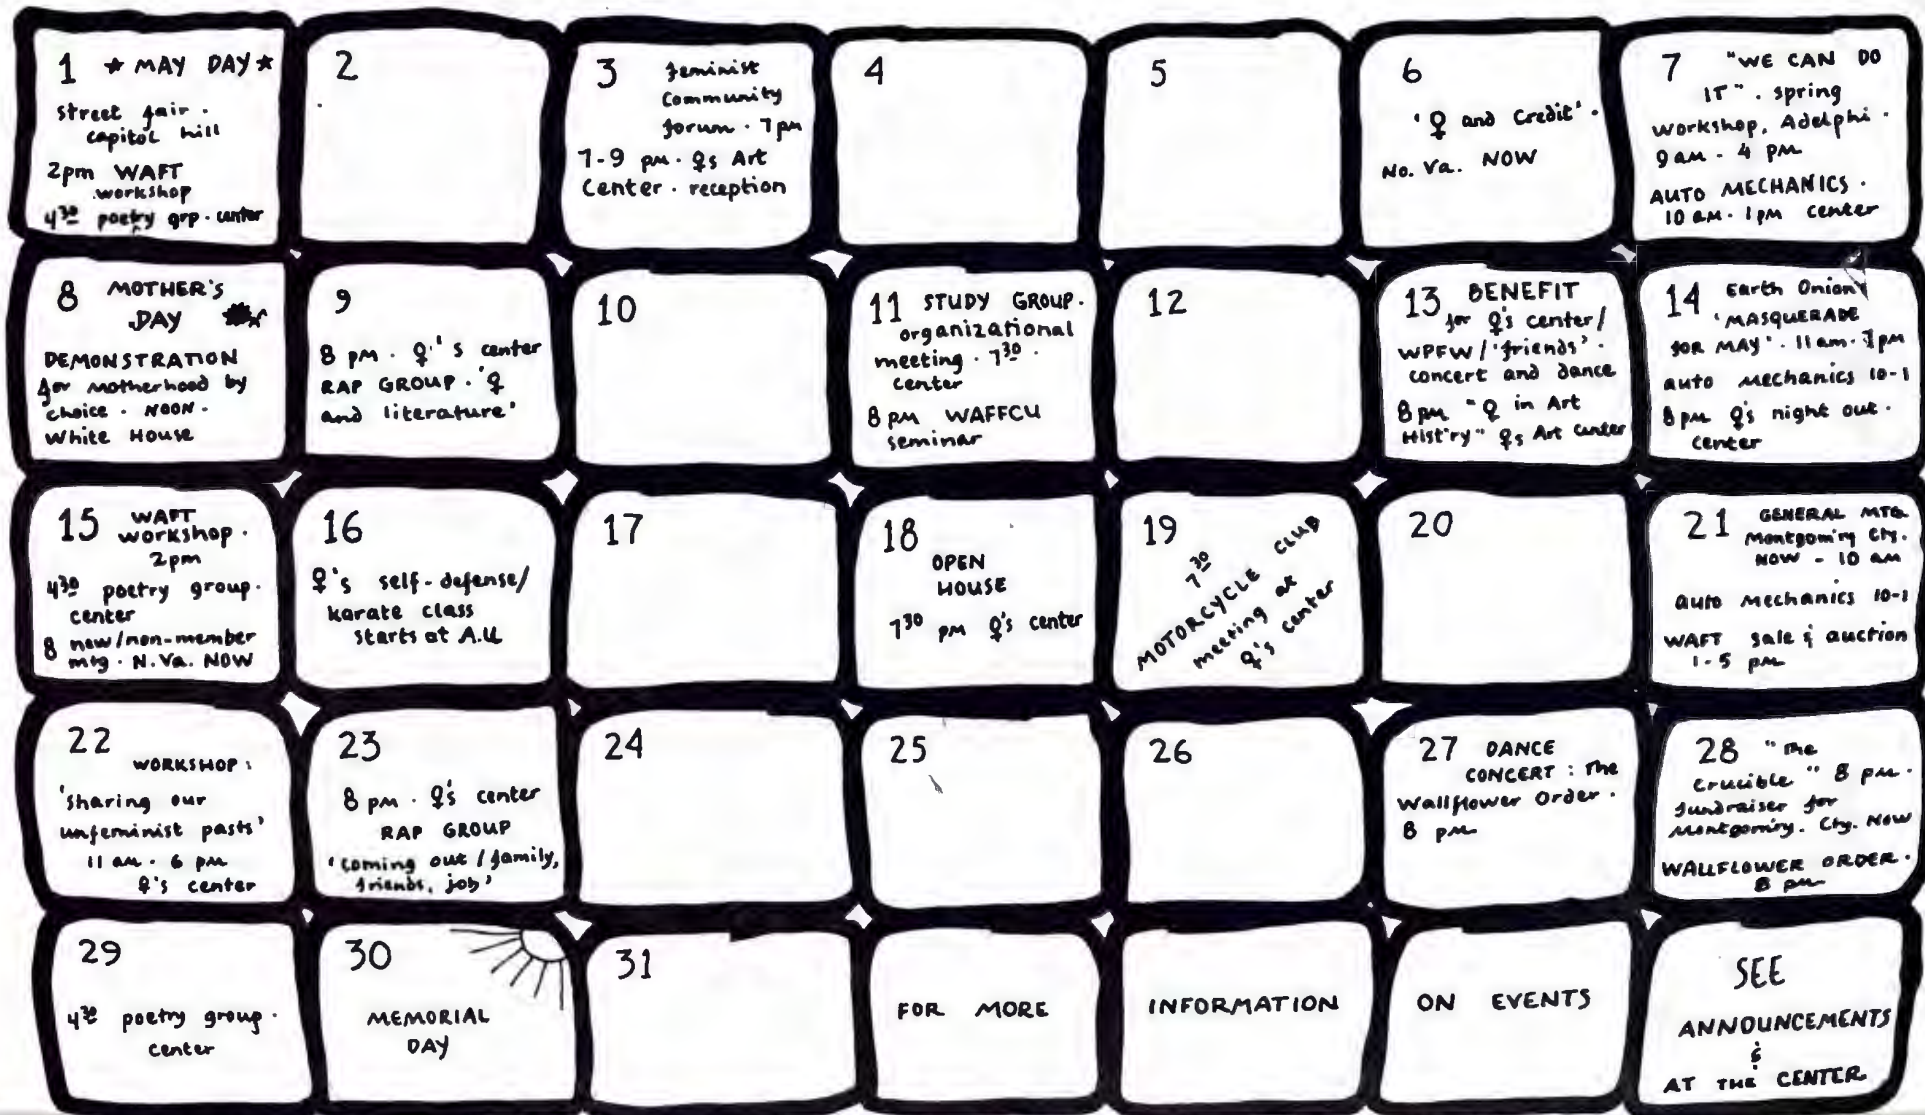 1 ★ MAY DAY ★
street fair .
capitol hill
2pm WAFT
workshop
4³⁰ poetry grp . center
2
3 feminist
community
forum . 7 pm
7-9 pm . ♀s Art
Center . reception
4
5
6
'♀ and Credit' .
No. Va. NOW
7 "WE CAN DO
IT" . spring
workshop, Adelphi .
9 am - 4 pm
AUTO MECHANICS .
10 am - 1 pm center
8 MOTHER'S
DAY
DEMONSTRATION
for motherhood by
choice . NOON .
White House
9
8 pm . ♀'s center
RAP GROUP . '♀
and literature'
10
11 STUDY GROUP .
organizational
meeting . 7³⁰ .
center
8 pm WAFFCU
seminar
12
13 BENEFIT
for ♀'s center/
WPFW/'friends' .
concert and dance
8 pm "♀ in Art
Hist'ry" ♀s Art center
14 Earth Onion
'MASQUERADE
FOR MAY' . 11 am -
auto mechanics 10-1
8 pm ♀'s night out .
center
15 WAFT
workshop .
2pm
4³⁰ poetry group .
center
8 new/non-member
mtg . N. Va. NOW
16
♀'s self-defense/
karate class
starts at A.U.
17
18
OPEN
HOUSE
7³⁰ pm ♀'s center
19
7³⁰
MOTORCYCLE CLUB
meeting at
♀'s center
20
21 GENERAL MTG
Montgom'ry Cty.
NOW - 10 am
auto mechanics 10-1
WAFT sale & auction
1-5 pm
22
WORKSHOP :
'sharing our
unfeminist pasts'
11 am - 6 pm
♀'s center
23
8 pm . ♀'s center
RAP GROUP
'coming out / family,
friends, job'
24
25
26
27 DANCE
CONCERT : The
Wallflower Order .
8 pm
28 "The
Crucible" 8 pm .
fundraiser for
Montgom'ry. Cty. NOW
WALLFLOWER ORDER .
8 pm
29
4³⁰ poetry group .
center
30
MEMORIAL
DAY
31
FOR MORE
INFORMATION
ON EVENTS
SEE
ANNOUNCEMENTS
&
AT THE CENTER